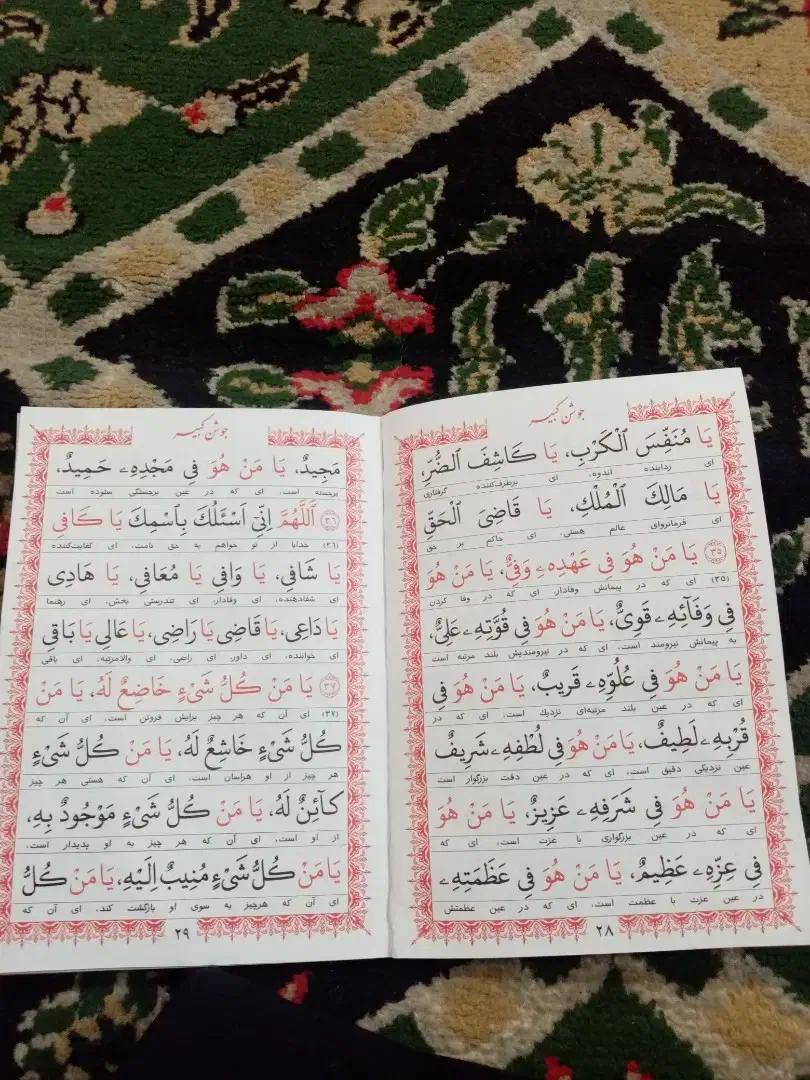 جوشن کبیر
یَا مُنَفِّسَ ٱلْکَرْبِ، یَا کَاشِفَ ٱلضُّرِّ،
ای زداینده اندوه، ای برطرف‌کننده گرفتاری
یَا مَالِکَ ٱلْمُلْکِ، یَا قَاضِیَ ٱلْحَقِّ
ای فرمانروای عالم هستی، ای حاکم بر حق
۳۵ یَا مَنْ هُوَ فِی عَهْدِهِ وَفِیٌّ، یَا مَنْ هُوَ
(۳۵) ای که در پیمانش وفادار، ای که در وفا کردن
فِی وَفَآئِهِ قَوِیٌّ، یَا مَنْ هُوَ فِی قُوَّتِهِ عَلِیٌّ،
به پیمانش نیرومند است، ای که در نیرومندیش بلند مرتبه است
یَا مَنْ هُوَ فِی عُلُوِّهِ قَرِیبٌ، یَا مَنْ هُوَ فِی
ای که در عین بلند مرتبه‌ای نزدیک است، ای که در
قُرْبِهِ لَطِیفٌ، یَا مَنْ هُوَ فِی لُطْفِهِ شَرِیفٌ
عین نزدیکی دقیق است، ای که در عین دقت بزرگوار است
یَا مَنْ هُوَ فِی شَرَفِهِ عَزِیزٌ، یَا مَنْ هُوَ
ای که در عین بزرگواری با عزت است، ای که
فِی عِزِّهِ عَظِیمٌ، یَا مَنْ هُوَ فِی عَظَمَتِهِ
در عین عزت با عظمت است، ای که در عین عظمتش
۲۸
جوشن کبیر
مَجِیدٌ، یَا مَنْ هُوَ فِی مَجْدِهِ حَمِیدٌ،
برجسته است، ای که در عین برجستگی ستوده است
۳۶ اَللّٰهُمَّ اِنِّی اَسْئَلُکَ بِاسْمِکَ یَا کَافِی
(۳۶) خدایا از تو خواهم به حق نامت، ای کفایت‌کننده
یَا شَافِی، یَا وَافِی یَا مُعَافِی، یَا هَادِی
ای شفادهنده، ای وفادار، ای تندرستی بخش، ای رهنما
یَا دَاعِی، یَا قَاضِی یَا رَاضِی، یَا عَالِی یَا بَاقِی
ای خواننده، ای داور، ای راضی، ای والامرتبه، ای باقی
۳۷ یَا مَنْ کُلُّ شَیْءٍ خَاضِعٌ لَهُ، یَا مَنْ
(۳۷) ای آن که هر چیز برایش فروتن است، ای آن که
کُلُّ شَیْءٍ خَاشِعٌ لَهُ، یَا مَنْ کُلُّ شَیْءٍ
هر چیز از او هراسان است، ای آن که هستی هر چیز
کَآئِنٌ لَهُ، یَا مَنْ کُلُّ شَیْءٍ مَوْجُودٌ بِهِ،
از او است، ای آن که هر چیز به او پدیدار است،
یَا مَنْ کُلُّ شَیْءٍ مُنِیبٌ اِلَیْهِ، یَا مَنْ کُلُّ
ای آن که هرچیز به سوی او بازگشت کند، ای آن که
۲۹